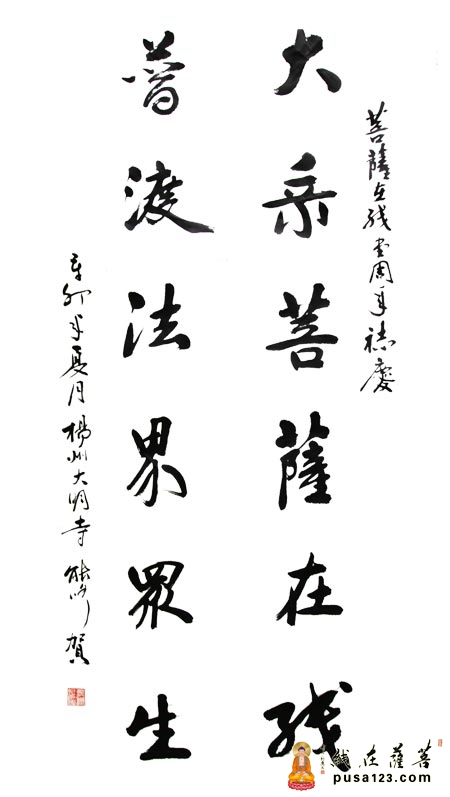 菩薩在线壹周年誌慶
大乘菩薩在线
普渡法界眾生
辛卯年夏月揚州大明寺能修賀
菩薩在线
pusa123.com